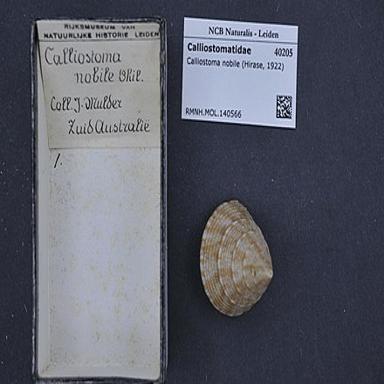 RIJKSMUSEUM VAN
NATUURLIJKE HISTORIE LEIDEN
Calliostoma
nobile Phil.
Coll. J. Mulder
Zuid Australië
1.
NCB Naturalis - Leiden
Calliostomatidae 40205
Calliostoma nobile (Hirase, 1922)
RMNH.MOL.140566